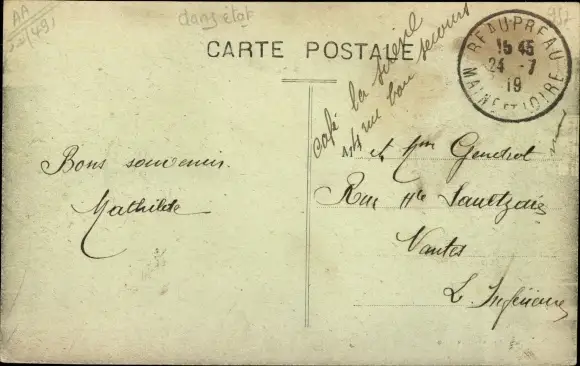 AA
dans état
CARTE POSTALE
BEAUPREAU
15 45
24 - 7
19
MAINE ET LOIRE
café la
rue bon secours
Bons souvenirs
Mathilde
M et Mme Gendrot
Rue
Nantes
L. Inférieure